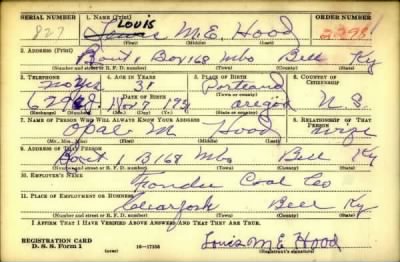 SERIAL NUMBER 1. NAME (Print) ORDER NUMBER
827 LOUIS M.E. Hood
(First) (Middle) (Last)
2. ADDRESS (Print)
Rout 1 Box 168 Mbo Bell Ky
(Number and street or R. F. D. number) (Town) (County) (State)
3. TELEPHONE 4. AGE IN YEARS 5. PLACE OF BIRTH 6. COUNTRY OF CITIZENSHIP
38 Portland
DATE OF BIRTH (Town or county)
Nov 7 Oregon U.S.
(Exchange) (Number) (Mo.) (Day) (Yr.) (State or country)
7. NAME OF PERSON WHO WILL ALWAYS KNOW YOUR ADDRESS 8. RELATIONSHIP OF THAT PERSON
Opal M Hood Wife
(Mr., Mrs., Miss) (First) (Middle) (Last)
9. ADDRESS OF THAT PERSON
Rout 1 B 168 Mbo Bell Ky
(Number and street or R. F. D. number) (Town) (County) (State)
10. EMPLOYER'S NAME
Coal Co
11. PLACE OF EMPLOYMENT OR BUSINESS
Clearfork Bell Ky
(Number and street or R. F. D. number) (Town) (County) (State)
I AFFIRM THAT I HAVE VERIFIED ABOVE ANSWERS AND THAT THEY ARE TRUE.
REGISTRATION CARD
D. S. S. Form 1 16-17105 Louis M E Hood